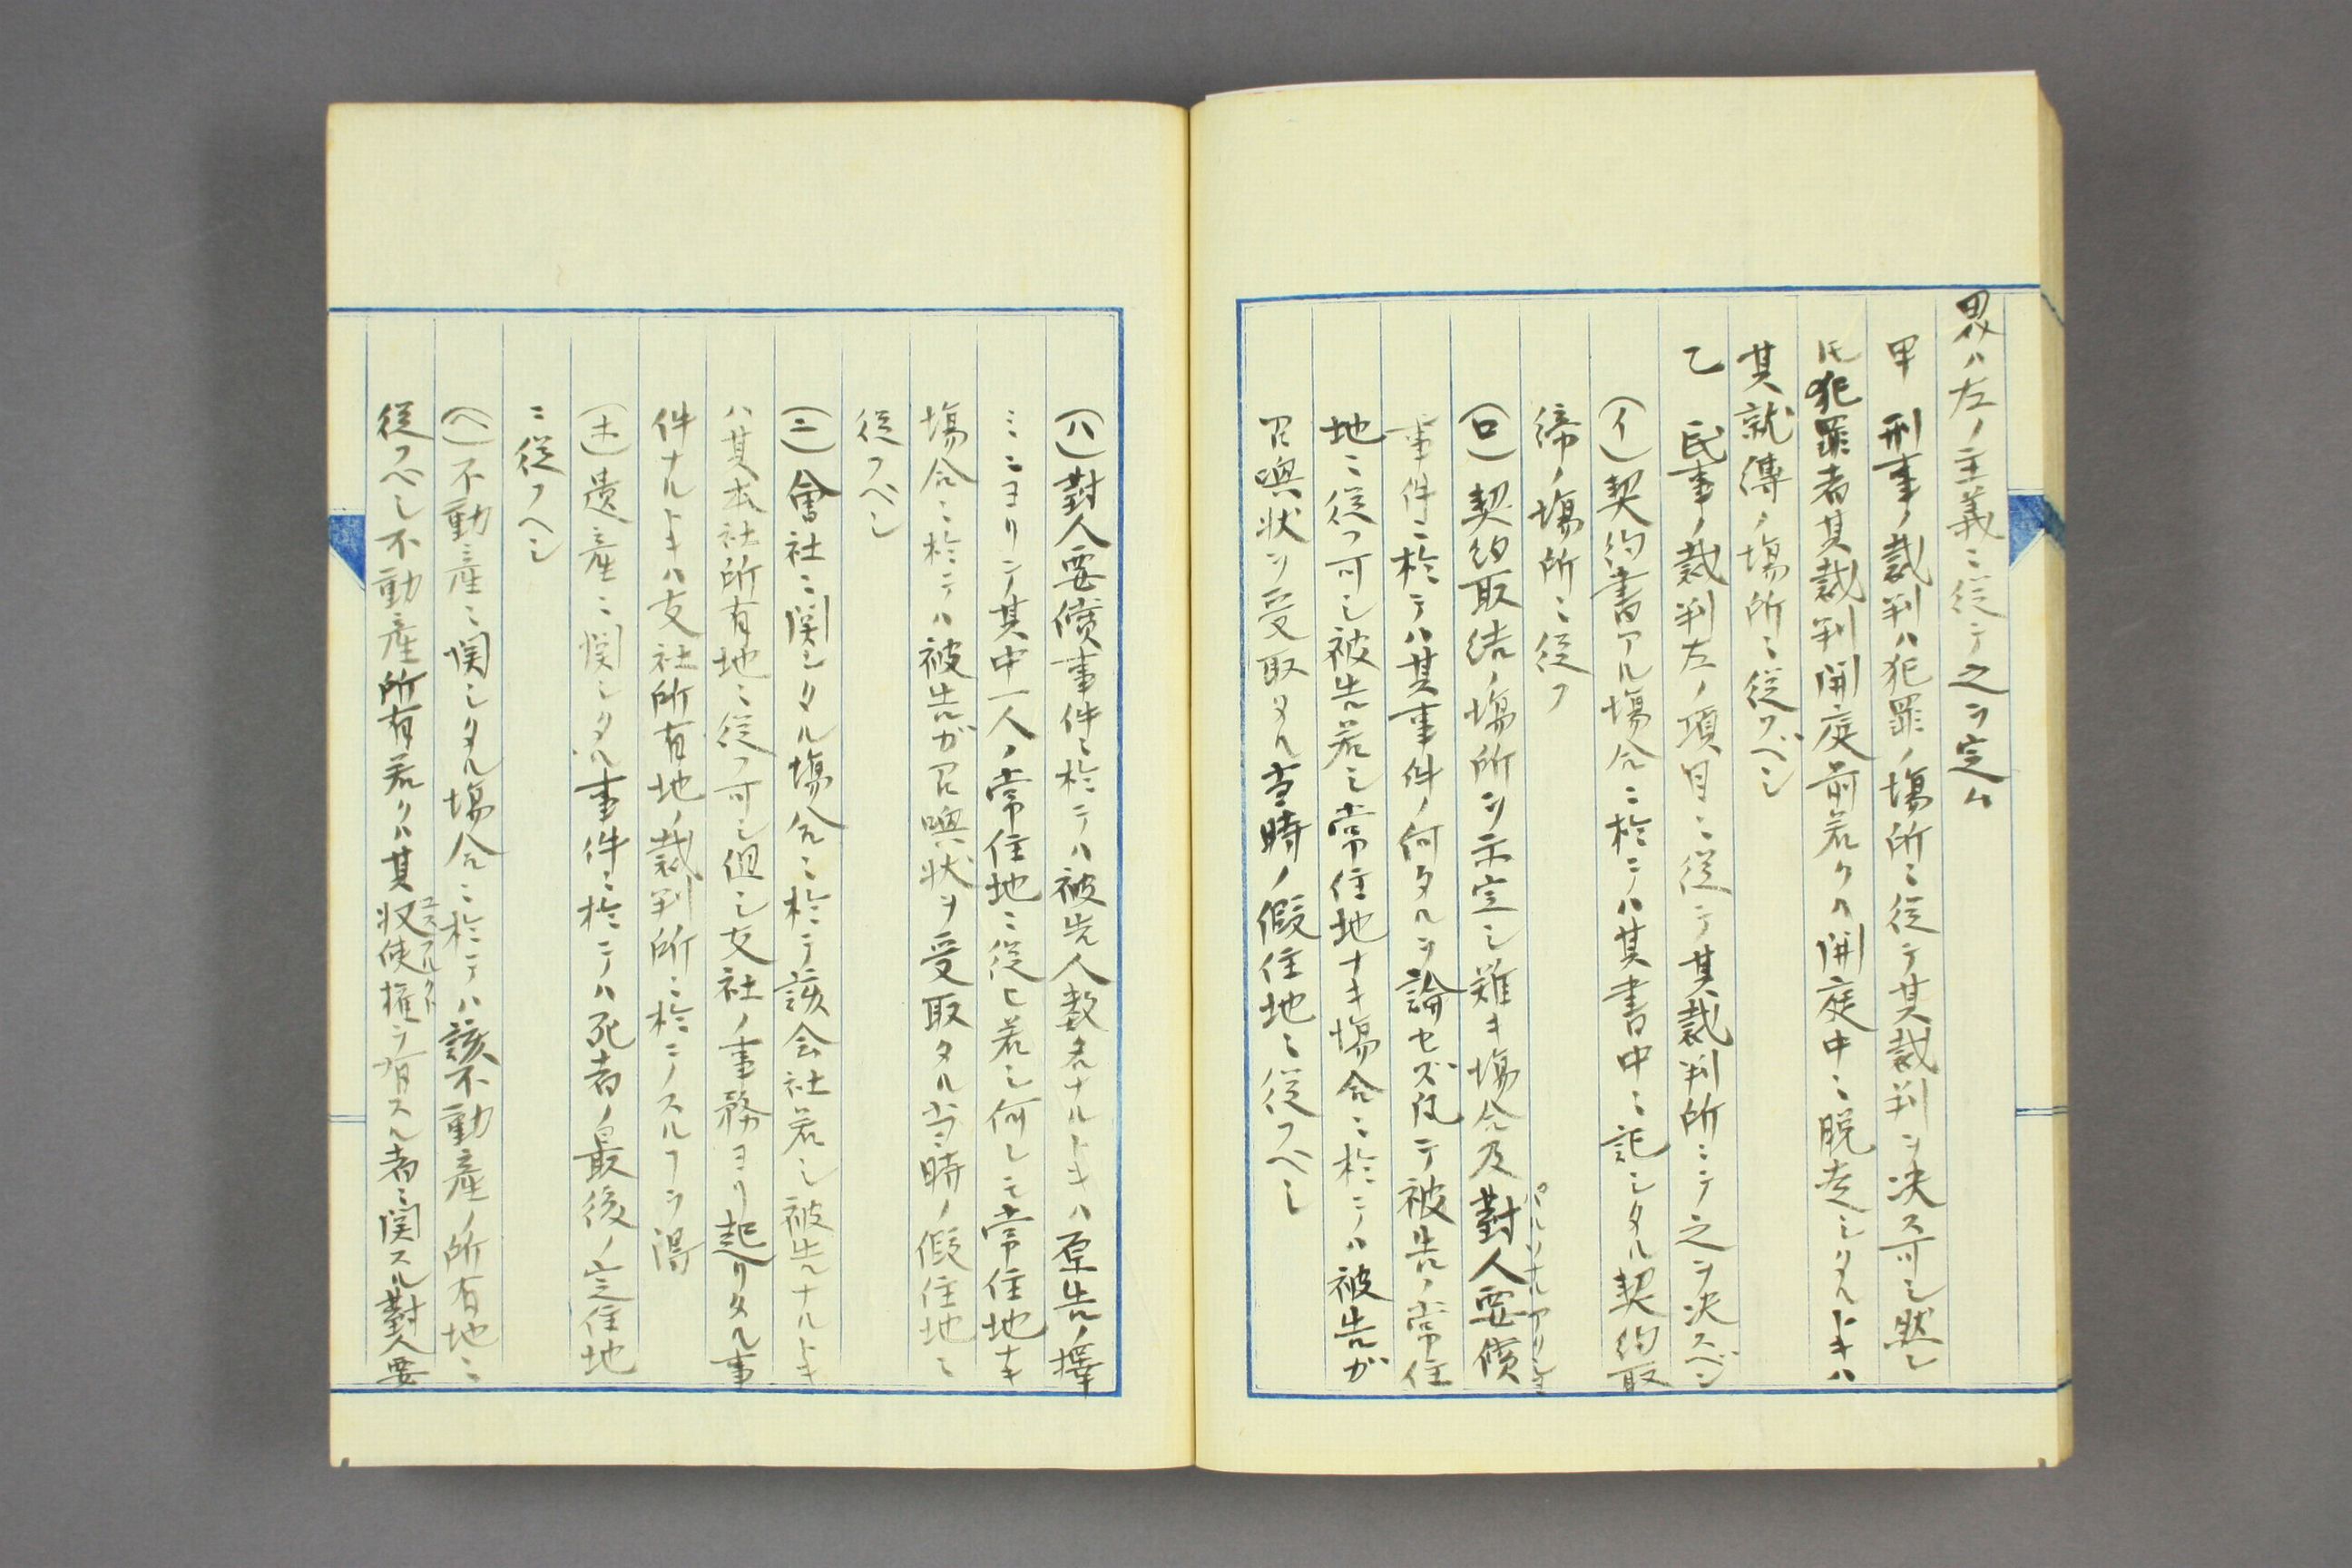 界ハ左ノ主義ニ従テ之ヲ定ム
甲 刑事ノ裁判ハ犯罪ノ場所ニ従テ其裁判ヲ決ス可シ然レ
𪜈犯罪者其裁判開庭前若クハ開庭中ニ脱走シタルトキハ
其就縛ノ場所ニ従フベシ
乙 民事ノ裁判左ノ項目ニ従テ其裁判所ニテ之ヲ決スベシ
(イ)契約書アル場合ニ於テハ其書中ニ記シタル契約取
締ノ場所ニ従フ
(ロ)契約取結ノ場所ヲ示定シ難キ場合及對人要償
事件ニ於テハ其事件ノ何タルヲ論セズ凡テ被告ノ常住
地ニ従フ可シ被告若シ常住地ナキ場合ニ於テハ被告ガ
召喚状ヲ受取タル当時ノ假住地ニ従フベシ
(ハ)對人要償事件ニ於テハ被告人数名ナルトキハ原告ノ擇
ミニヨリテ其中一人ノ常住地ニ従ヒ若シ何レモ常住地ナキ
場合ニ於テハ被告ガ召喚状ヲ受取タル当時ノ假住地ニ
従フベシ
(ニ)會社ニ関シタル場合ニ於テ該会社若シ被告ナルトキ
ハ其本社所有地ニ従フ可シ但シ支社ノ事務ヨリ起リタル事
件ナルトキハ支社所有地ノ裁判所ニ於テスルヿヲ得
(ホ)遺産ニ関シタル事件ニ於テハ死者ノ最後ノ定住地
ニ従フヘシ
(ヘ)不動産ニ関シタル場合ニ於テハ該不動産ノ所有地ニ
従フベシ不動産所有若クハ其収使権ヲ有スル者ニ関スル對人要